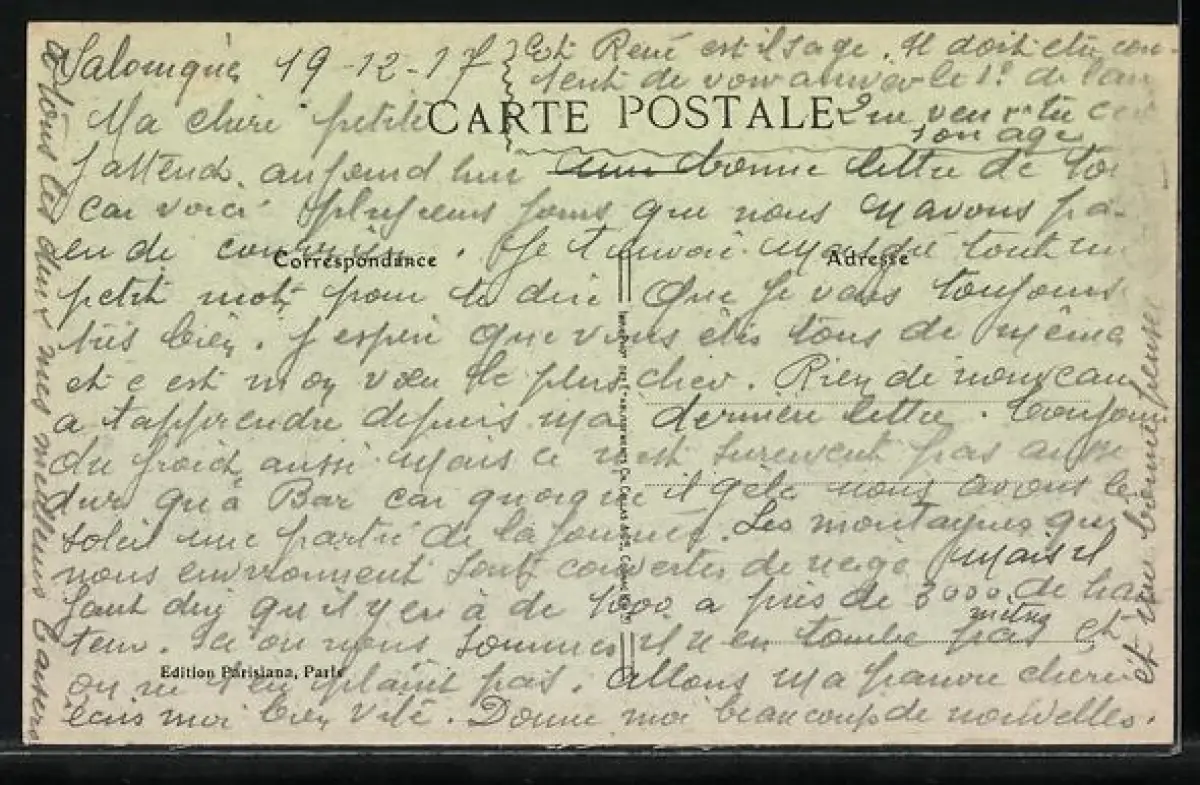 Salonique 19-12-17
Ma chère petite
J attend aujourd hui bonne lettre de toi
car voici plusieurs jours que nous n avons pa-
eu de courrier. Je t envoie tout un
petit mot pour te dire Que je vais toujours
très bien. J espère que vous êtes tous de même
et c est mon vœu le plus cher. Rien de nouveau
a t apprendre depuis ma dernière lettre. Toujours
du froid aussi mais ce n est surement pas aussi
dur qu à Bar car quoique il gèle nous avons le
soleil une partie de la journée. Les montagnes qui
nous environnent sont couvertes de neige mais il
faut dire qu il y en à de 1000 a près de 3000 metres de hau
teur. Ici ou nous sommes il n en tombe pas et
on ne s en plaint pas. Allons ma pauvre cherie
écris moi bien vite. Donne moi beaucoup de nouvelles.
Et René est il sage. Il doit etre con-
tent de voir arriver le 1er de l an
Que veux tu c est
son age
et une bonne
a tous les deux mes meilleurs baisers
CARTE POSTALE
Correspondance
Adresse
Edition Parisiana, Paris